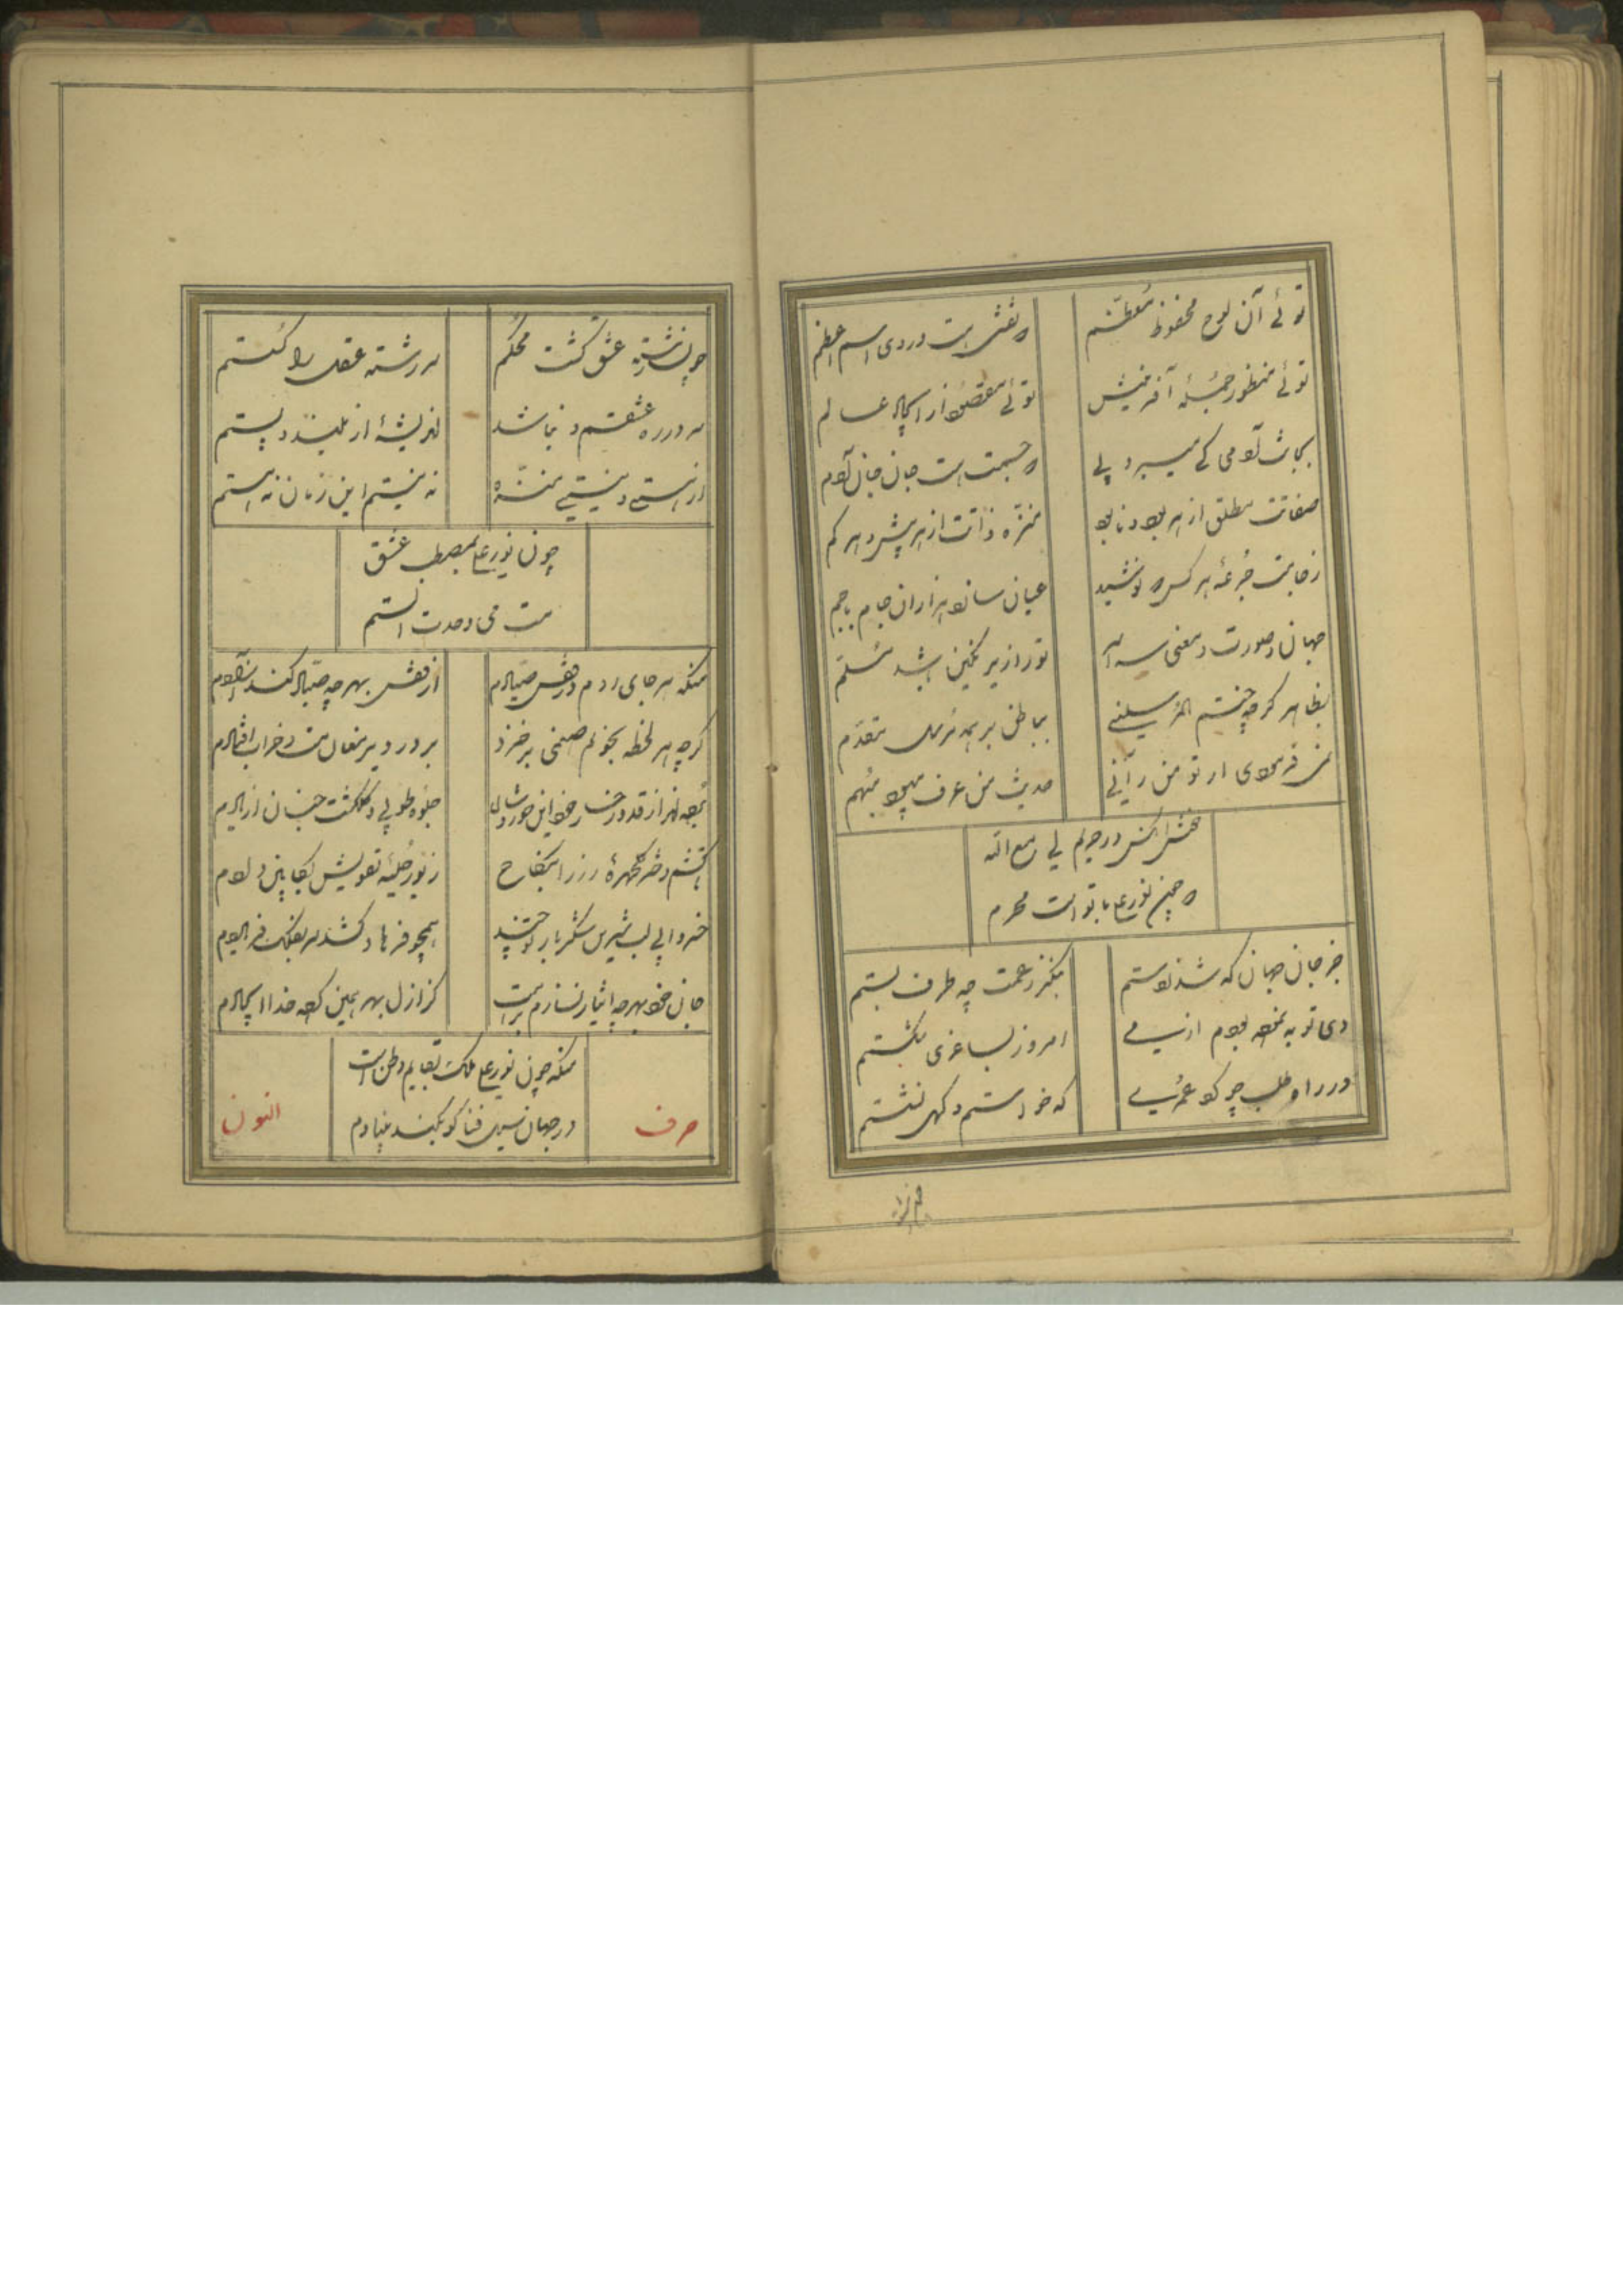 توئی آن لوح محفوظ معظم
که نقش است در وی اسم اعظم
توئی منظور جمله آفرینش
توئی مقصود از ایجاد عالم
بجانت آدمی کی میبرد پی
که جسمت است جان جان آدم
صفاتت مطلق از هر بود و نابود
منزه ذاتت از هر بیش و هر کم
ز جامت جرعه هر کس که نوشید
عیان سازد هزاران جام با جم
جهان صورت و معنی سراسر
تو را زیر نگین باشد مسلم
بظاهر گرچه ختم المرسلینی
بباطن بر همه مرسل مقدم
من فرمودی ار تو من رآنی
حدیث من عرف میبود مبهم
در حریم لی مع الله
که چون نورعلی با تو است محرم
جز جان جهان که شد ز دستم
بنگر ز غمت چه طرف بستم
دی توبه نموده بودم از می
امروز بساغری شکستم
در راه طلب چو گرد عمری
که خواستم و گهی نشستم
چون رشته عشق گشت محکم
سر رشته عقل را گسستم
سر در ره عشقم و نباشد
اندیشه از بلند و پستم
از هستی و نیستی منزه
نه نیستم این زمان نه هستم
چون نورعلی بمصطب عشق
مست می وحدت الستم
منکه هر جای روم در قفس صیادم
از قفس بهر چه صیاد کند آزادم
گرچه هر لحظه بخونم صنمی برخیزد
بر در دیر مغان مست و خراب افتادم
جلوه طوبی و گلگشت جنان از یادم
دختر گلچهره رز را بنکاح
زیور حلیه تقویش بکابین دادم
خسروا بی لب شیرین شکربار تو چند
همچو فرهاد کشد سر بفلک فریادم
جان خود بهر چه ایثار نسازم برهت
کز ازل بهر همین کرده خدا ایجادم
منکه چون نورعلی ملک بقایم وطن است
در جهان سیل فنا گو بکند بنیادم
حرف
النون